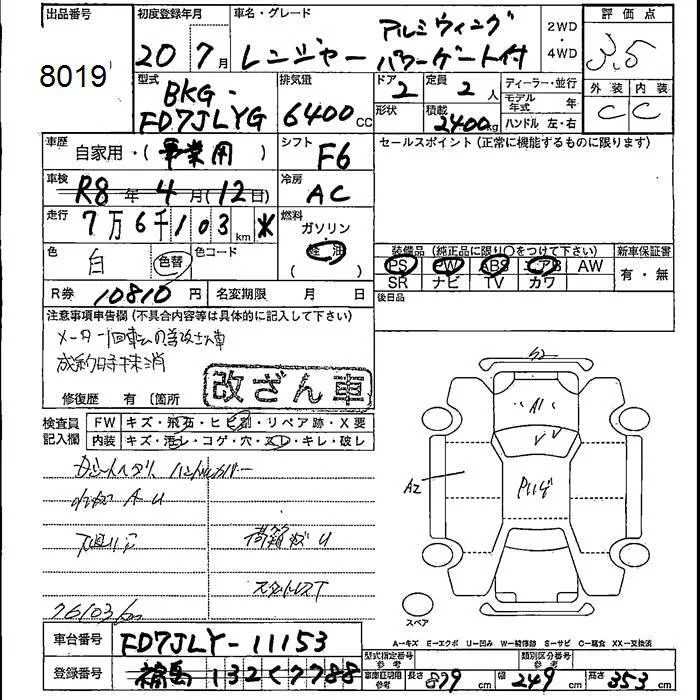 出品番号
8019
初度登録年月
20 7月
車名・グレード
アルミウィング
レンジャー パワーゲート付
2WD
・
4WD
評価点
3.5
外装 内装
C C
型式
BKG-
FD7JLYG
排気量
6400 CC
ドア
2
形状
定員
2人
積載
2400kg
ディーラー・並行
モデル年式 年
ハンドル 左・右
車歴
自家用・(事業用)
シフト
F6
セールスポイント (正常に機能するものに限ります)
車検
R8年4月(12日)
冷房
AC
走行
7万6千103km *
燃料
ガソリン
軽油
( )
色
白
色替
色コード
装備品 (純正品に限り○をつけて下さい)
PS PW ABS エアB AW
SR ナビ TV カワ
新車保証書
有・無
R券 10810円
名変期限 月 日
後日品
注意事項申告欄 (不具合内容等は具体的に記入して下さい)
成約時抹消
改ざん車
修復歴 有 ( )箇所
検査員
記入欄
FW キズ・飛石・ヒビ割・リペア跡・X要
内装 キズ・汚レ・コゲ・穴・スレ・キレ・破レ
ハンドルカバー
S2
A1
A2
スペア
A=キズ E=エクボ U=凹み W=補修跡 S=サビ C=腐食 XX=交換済
車台番号
FD7JLY-11153
登録番号
福島 132く7788
型式指定番号
参考
類別区分番号
参考
車庫証明用
参考
長さ 879cm
幅 249cm
高さ 353cm